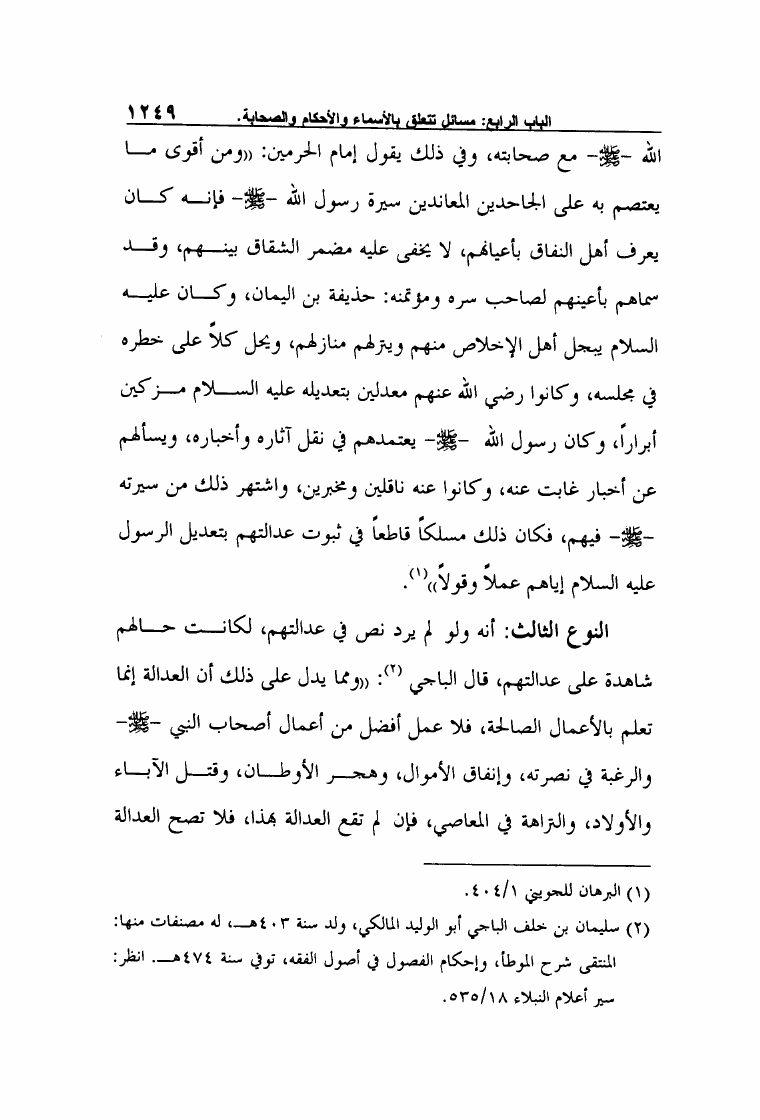 الباب الرابع: مسائل تتعلق بالأسماء والأحكام والصحابة. ١٢٤٩
الله -ﷺ- مع صحابته، وفي ذلك يقول إمام الحرمين: ((ومن أقوى مـا
يعتصم به على الجاحدين المعاندين سيرة رسول الله -ﷺ- فإنـه كـان
يعرف أهل النفاق بأعيانهم، لا يخفى عليه مضمر الشقاق بينـهم، وقـد
سماهم بأعينهم لصاحب سره ومؤتمنه: حذيفة بن اليمان، وكـان عليـه
السلام يبجل أهل الإخلاص منهم وينزلهم منازلهم، ويحل كلاً على خطره
في مجلسه، وكانوا رضي الله عنهم معدلين بتعديله عليه السـلام مـزكين
أبراراً، وكان رسول الله -ﷺ- يعتمدهم في نقل آثاره وأخباره، ويسألهم
عن أخبار غابت عنه، وكانوا عنه ناقلين ومخبرين، واشتهر ذلك من سيرته
-ﷺ- فيهم، فكان ذلك مسلكاً قاطعاً في ثبوت عدالتهم بتعديل الرسول
عليه السلام إياهم عملاً وقولاً))(١).
النوع الثالث: أنه ولو لم يرد نص في عدالتهم، لكانـت حـالهم
شاهدة على عدالتهم، قال الباجي (٢): ((ومما يدل على ذلك أن العدالة إنما
تعلم بالأعمال الصالحة، فلا عمل أفضل من أعمال أصحاب النبي -ﷺ-
والرغبة في نصرته، وإنفاق الأموال، وهجـر الأوطـان، وقتـل الآبـاء
والأولاد، والنزاهة في المعاصي، فإن لم تقع العدالة بهذا، فلا تصح العدالة
(١) البرهان للجويني ٤٠٤/١.
(٢) سليمان بن خلف الباجي أبو الوليد المالكي، ولد سنة ٤٠٣هـ، له مصنفات منها:
المنتقى شرح الموطأ، وإحكام الفصول في أصول الفقه، توفي سنة ٤٧٤هـ. انظر:
سير أعلام النبلاء ٥٣٥/١٨.